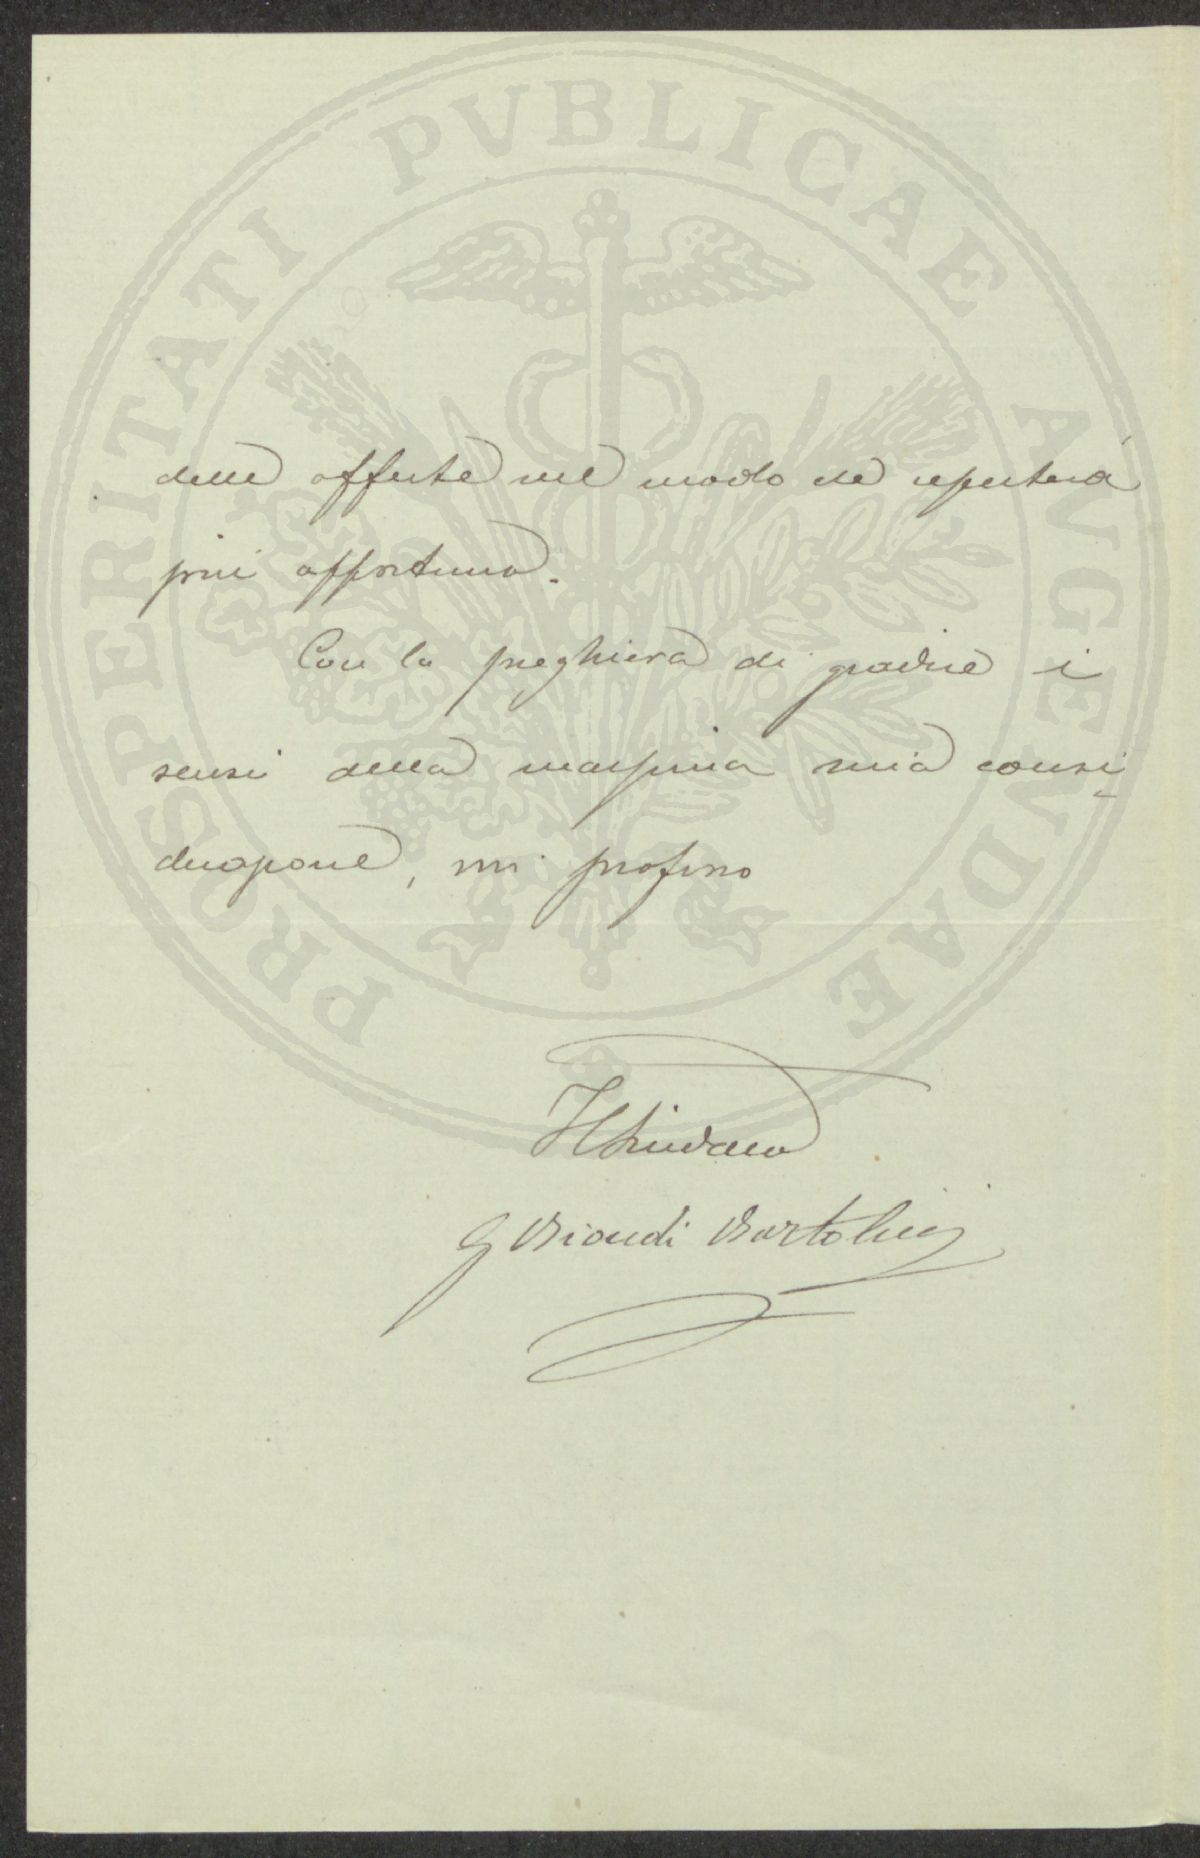 PROSPERITATI PVBLICAE AVGENDAE
delle offerte nel modo che reputerà
più opportuno.
Con la preghiera di gradire i
sensi della massima mia consi
derazione, mi professo
Il Sindaco
G Biondi Bartolini